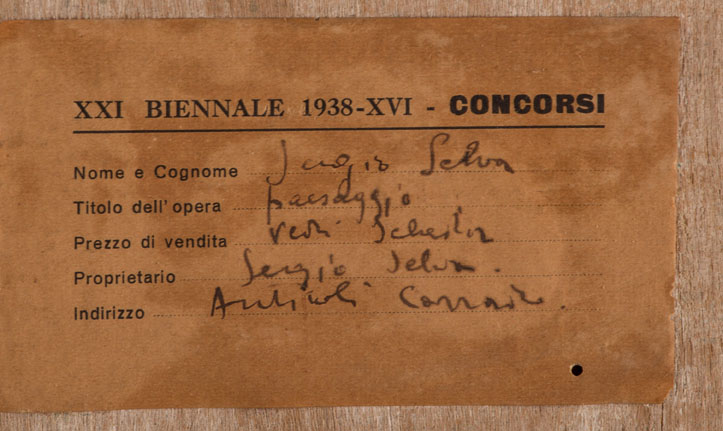 XXI BIENNALE 1938-XVI - CONCORSI
Nome e Cognome Sergio Selva
Titolo dell'opera paesaggio
Prezzo di vendita vedi Scheda
Proprietario Sergio Selva.
Indirizzo Anticoli Corrado.